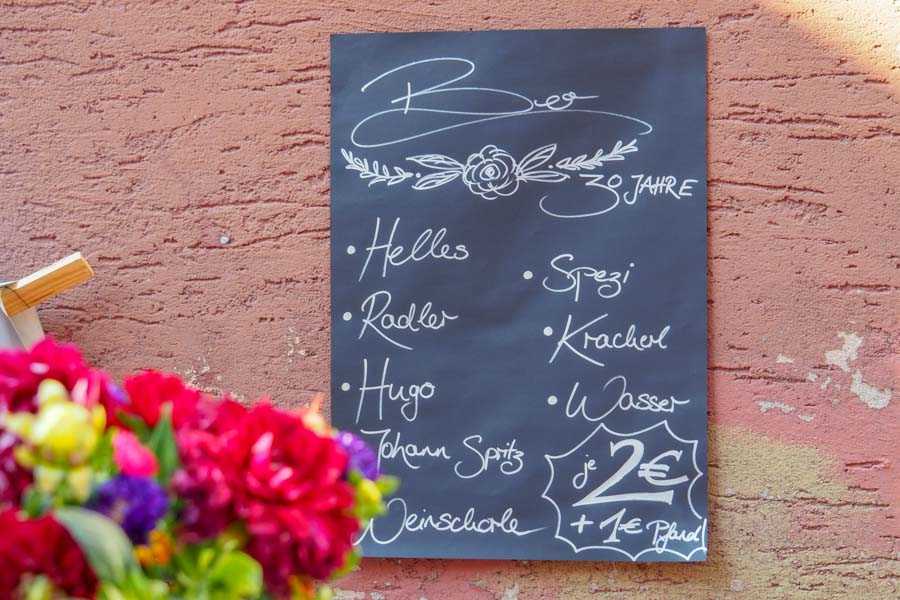 Bar
30 JAHRE
• Helles
• Radler
• Hugo
Johann Spritz
Weinschorle
• Spezi
• Kracherl
• Wasser
je 2€
+ 1€ Pfand